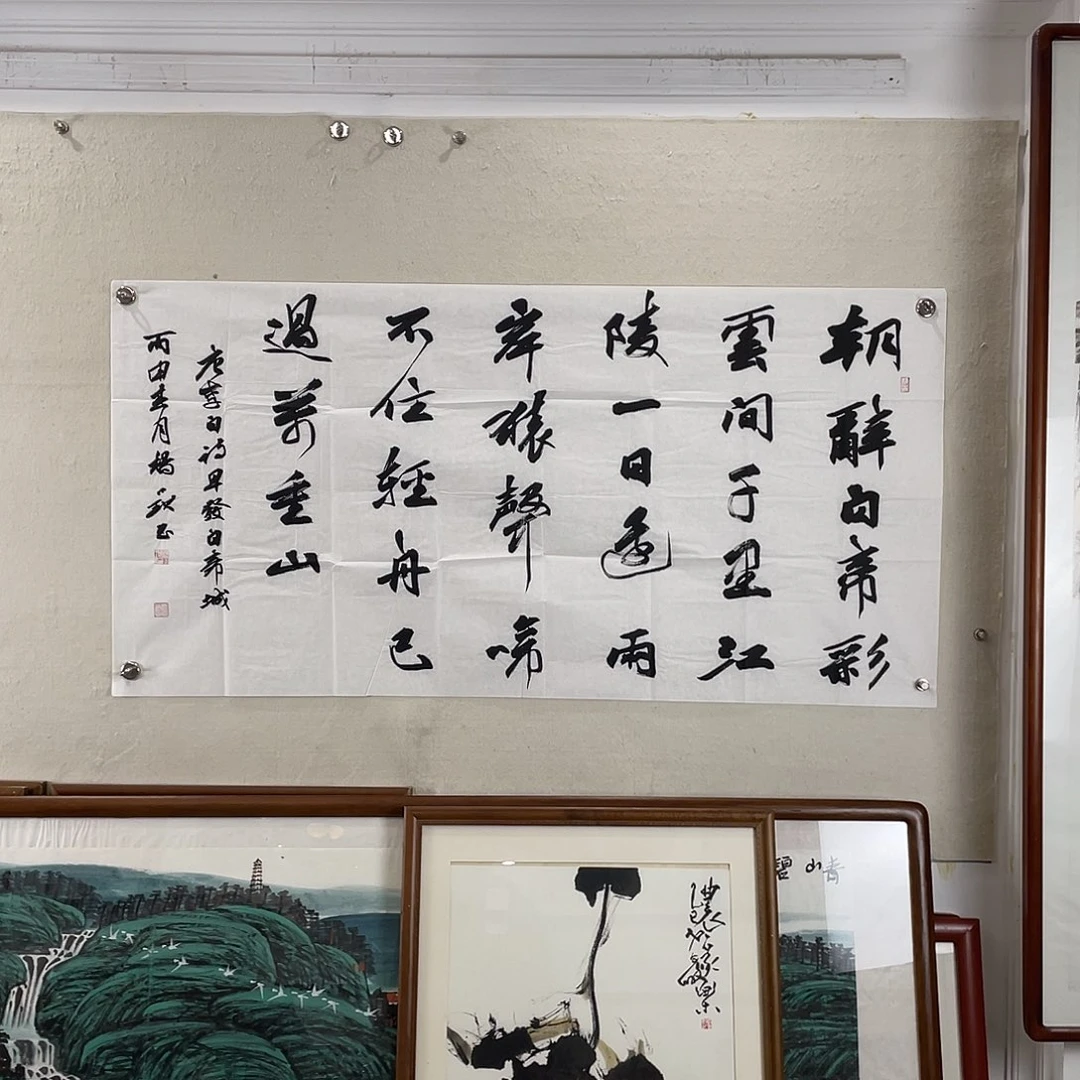 朝辭白帝彩
雲間千里江
陵一日還兩
岸猿聲啼
不住輕舟已
過萬重山
唐李白詩早發白帝城
丙申春月楊
青山碧